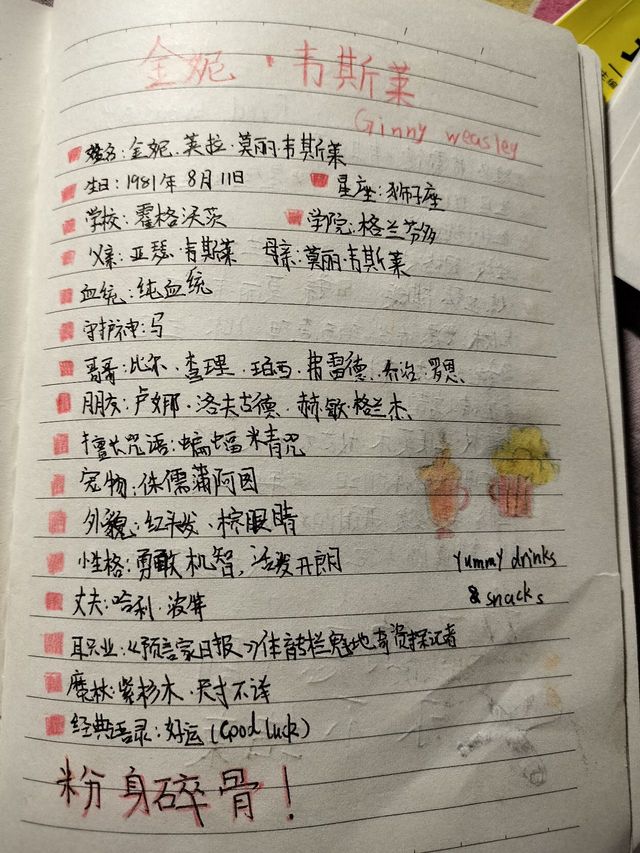 金妮·韦斯莱
Ginny weasley
姓名:金妮.莫丽韦斯莱
生日:1981年8月11日 星座:狮子座
学校:霍格沃茨 学院:格兰芬多
父亲:亚瑟·韦斯莱 母亲:莫丽·韦斯莱
血统:纯血统
守护神:马
哥哥:比尔·查理·珀西·弗雷德、乔治、罗恩、
朋友:卢娜·洛夫古德·赫敏·格兰杰
擅长咒语:蝙蝠精咒
宠物:侏儒蒲阿囡
外貌:红头发、棕眼睛
性格:勇敢机智,活泼开朗
yummy drinks
& snacks
丈夫:哈利·波特
职业:《预言家日报》体育专栏魁地奇资深记者
魔杖:紫杉木·尺寸不详
经典语录:好运(Good luck)
粉身碎骨!